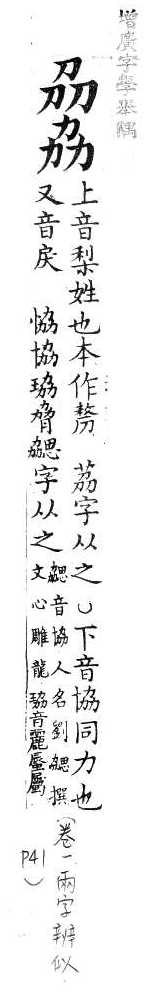 增廣字學舉隅
刕劦
上音梨姓也本作 茘字从之○下音協同力也
又音戾 恊協珕脅勰字从之
勰音協人名劉勰撰
文心雕龍 珕音麗蜃屬
(卷一兩字辨似
P41)